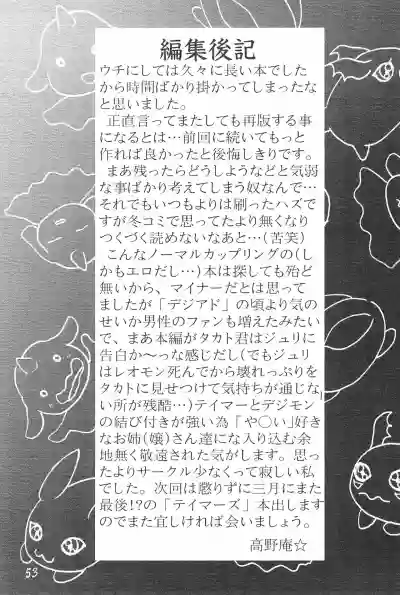 編集後記
ウチにしては久々に長い本でした
から時間ばかり掛かってしまったな
と思いました。
正直言ってまたしても再版する事
になるとは…前回に続いてもっと
作れば良かったと後悔しきりです。
まあ残ったらどうしようなどと気弱
な事ばかり考えてしまう奴なんで…
それでもいつもよりは刷ったハズで
すが冬コミで思ってたより無くなり
つくづく読めないなあと…(苦笑)
こんなノーマルカップリングの(し
かもエロだし…)本は探しても殆ど
無いから、マイナーだとは思って
ましたが「デジアド」の頃より気の
せいか男性のファンも増えたみたい
で、まあ本編がタカト君はジュリに
告白か〜っな感じだし(でもジュリ
はレオモン死んでから壊れっぷりを
タカトに見せつけて気持ちが通じな
い所が残酷…)テイマーとデジモン
の結び付きが強い為「や○い」好き
なお姉(嬢)さん達にな入り込む余
地無く敬遠された気がします。思っ
たよりサークル少なくって寂しい私
でした。次回は懲りずに三月にまた
最後!?の「テイマーズ」本出します
のでまた宜しければ会いましょう。
高野庵☆
53